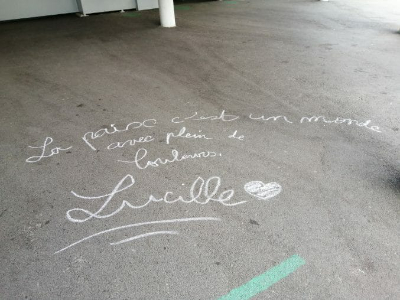 La paix c'est un monde
avec plein de
couleurs.
Lucille